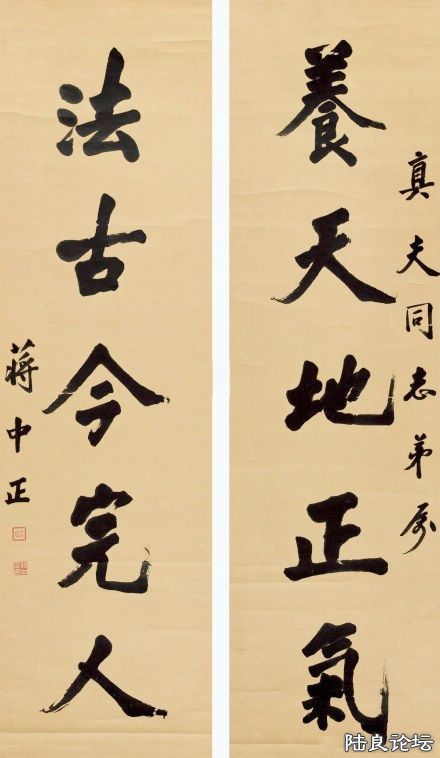 真夫同志弟屬
養天地正氣
法古今完人
蔣中正
陆良论坛